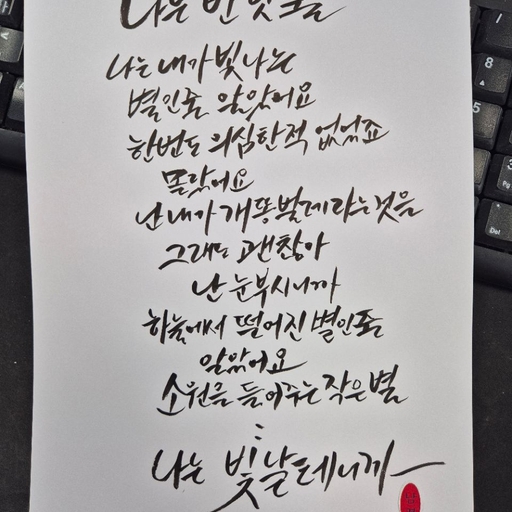 나는 반딧불
나는 내가 빛나는
별인줄 알았어요
한번도 의심한적 없었죠
몰랐어요
난 내가 개똥벌레라는 것을
그래도 괜찮아
난 눈부시니까
하늘에서 떨어진 별인줄
알았어요
소원을 들어주는 작은 별
:
나는 빛날테니까
8
5
Del